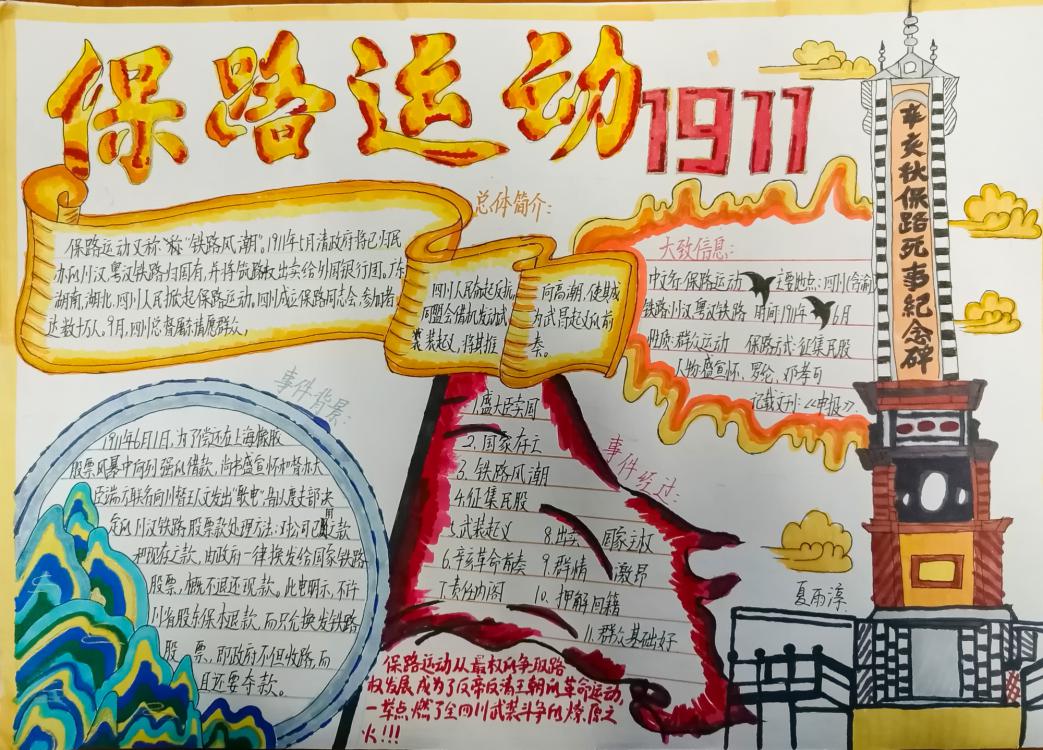 保路运动
1911
辛亥秋保路死事紀念碑
总体简介：
保路运动又称"称"铁路风潮"。1911年5月清政府将已归民
办的川汉、粤汉铁路归国有，并将筑路权出卖给外国银行团，广东
湖南，湖北，四川人民掀起保路运动，四川成立保路同志会，参加者
达数十万人，9月，四川总督屠杀请愿群众，
四川人民奋起反抗
同盟会借机发动武
装起义，将其推
向高潮，使其成
为武昌起义的前
奏。
大致信息：
中文名：保路运动 主要地点：四川（含渝）
铁路：川汉粤汉铁路 时间：1911年 6月
性质：群众运动 保路方式：征集民股
人物：盛宣怀、罗纶、邓孝可
记载文刊：《申报》
事件背景：
1911年6月1日，为了偿还在上海橡胶
股票风暴中向列强的借款，尚书盛宣怀和督办大
臣端方联名向川督王人文发出"歌电"，告以度支部决
定的川汉铁路股票款处理方法：对公司已用之款
和现存之款，由政府一律换发给国家铁路
股票，概不退还现款。此电明示，不许
川省股东保本退款，而只允换发铁路
股票，即政府不但收路，而
且还要夺款。
事件经过：
1.盛大臣卖国
2.国家存亡
3.铁路风潮
4.征集民股
5.武装起义 8.出卖 国家主权
6.辛亥革命前奏 9.群情 激昂
7.责任内阁 10.押解回籍
11.群众基础好
保路运动从最初的争取路
权发展成为了反帝反清王朝的革命运动，
一举点燃了全四川武装斗争的燎原之
火!!!
夏雨淳